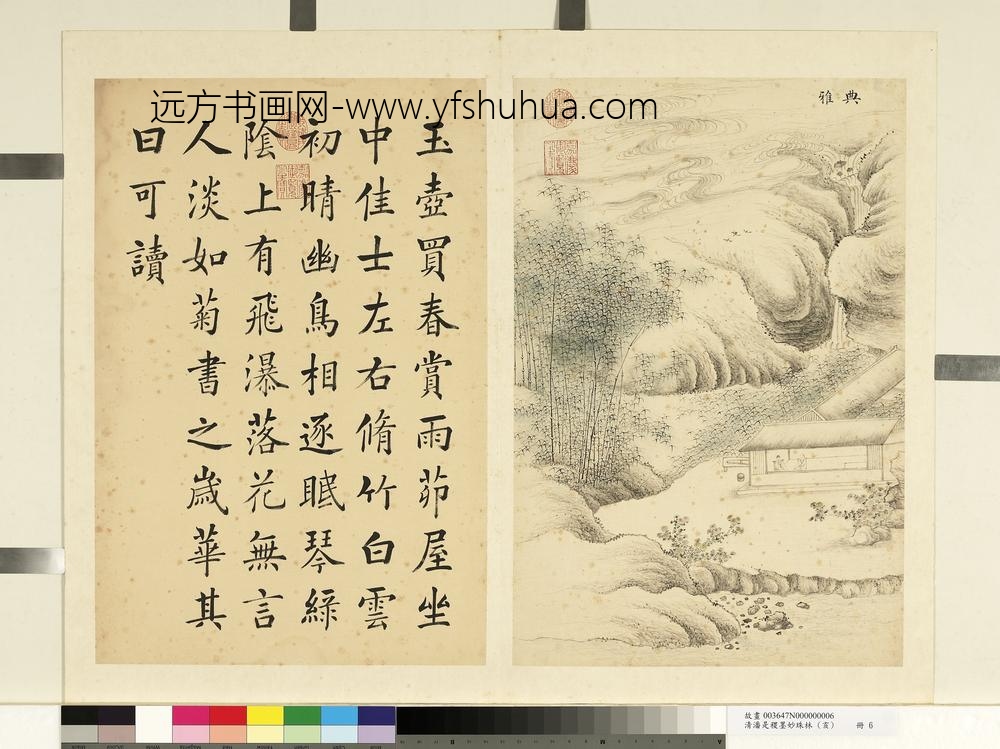 远方书画网-www.yfshuhua.com
典雅
玉壺買春賞雨茆屋坐
中佳士左右脩竹白雲
初晴幽鳥相逐眠琴綠
陰上有飛瀑落花無言
人淡如菊書之歲華其
曰可讀
故畫 003647N000000006
清潘是稷墨妙珠林（亥） 冊 6